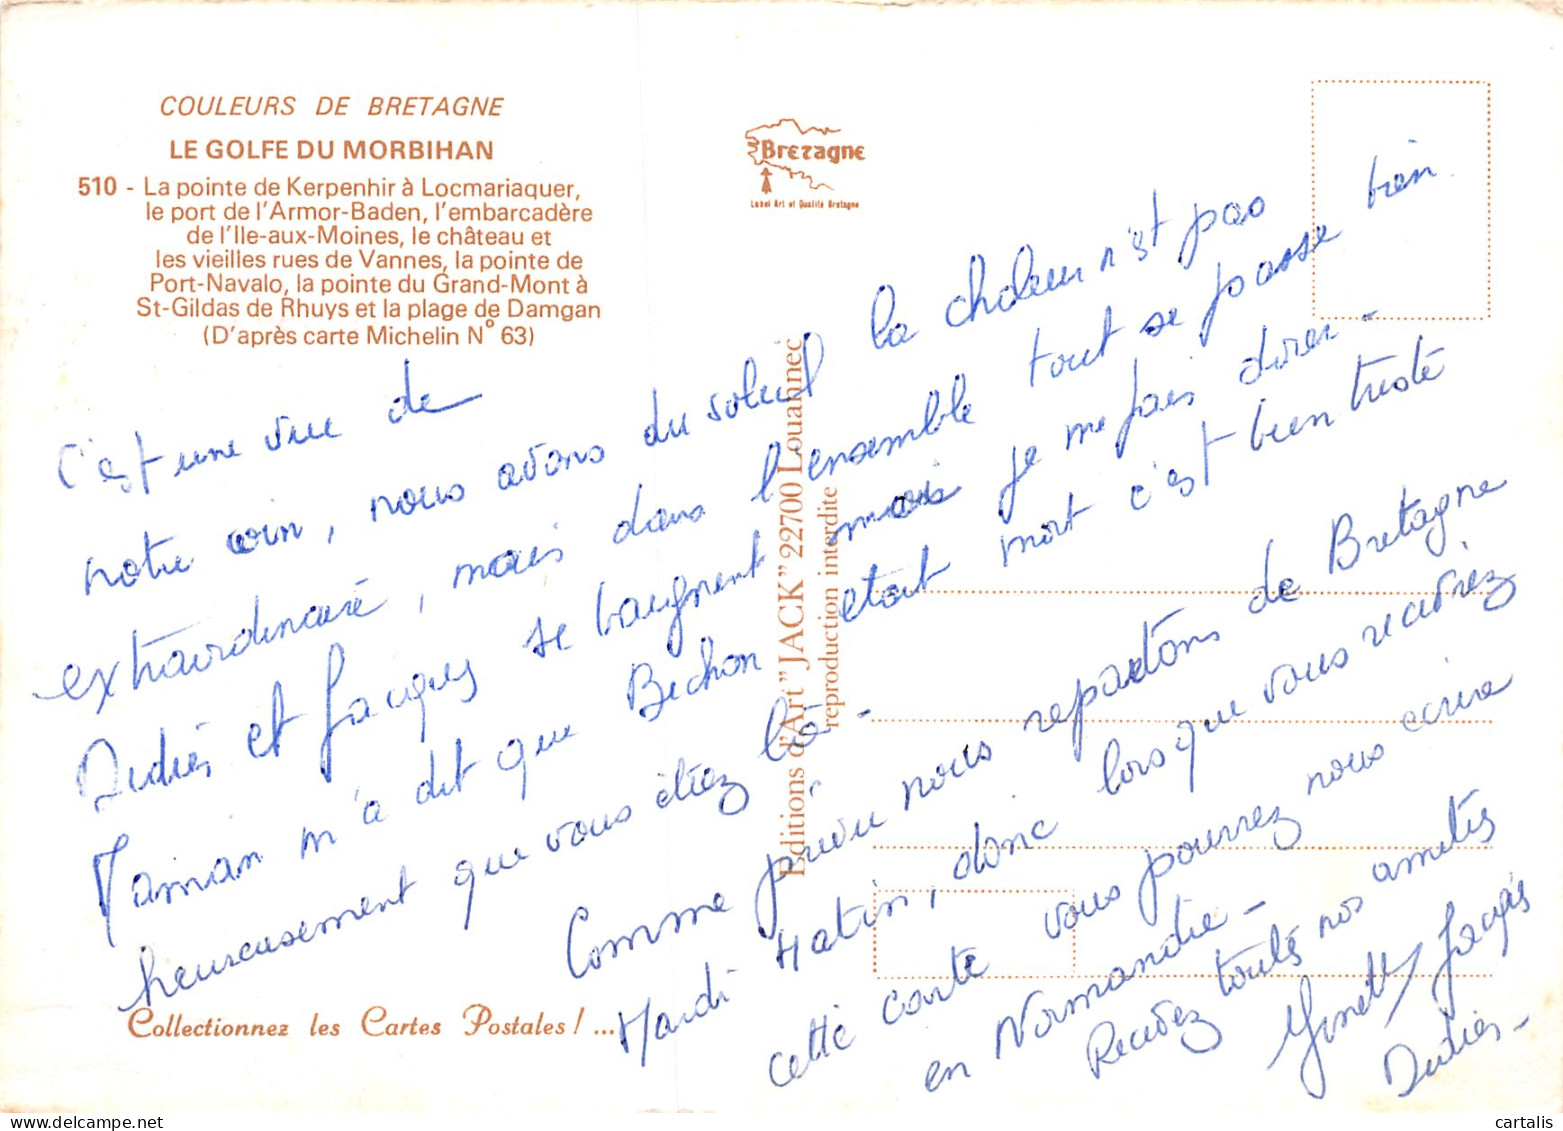 COULEURS DE BRETAGNE
LE GOLFE DU MORBIHAN
510 - La pointe de Kerpenhir à Locmariaquer,
le port de l'Armor-Baden, l'embarcadère
de l'Ile-aux-Moines, le château et
les vieilles rues de Vannes, la pointe de
Port-Navalo, la pointe du Grand-Mont à
St-Gildas de Rhuys et la plage de Damgan
(D'après carte Michelin N° 63)
Bretagne
Label Art et Qualité Bretagne
Editions d'Art "JACK" 22700 Louannec
reproduction interdite
C'est une vue de
notre coin, nous avons du soleil la chaleur n'est pas
extraordinaire, mais dans l'ensemble tout se passe bien.
Didier et Jacques se baignent mais je me fais dorer -
Maman m'a dit que Bichon etait mort c'est bien triste
heureusement que vous étiez là -
Comme prévu nous repartons de Bretagne
Mardi Matin, donc lorsque vous recevrez
cette carte vous pourrez nous ecrire
en Normandie -
Recevez toutes nos amitiés
Ginette Jacques
Didier -
Collectionnez les Cartes Postales ! ...
cartalis